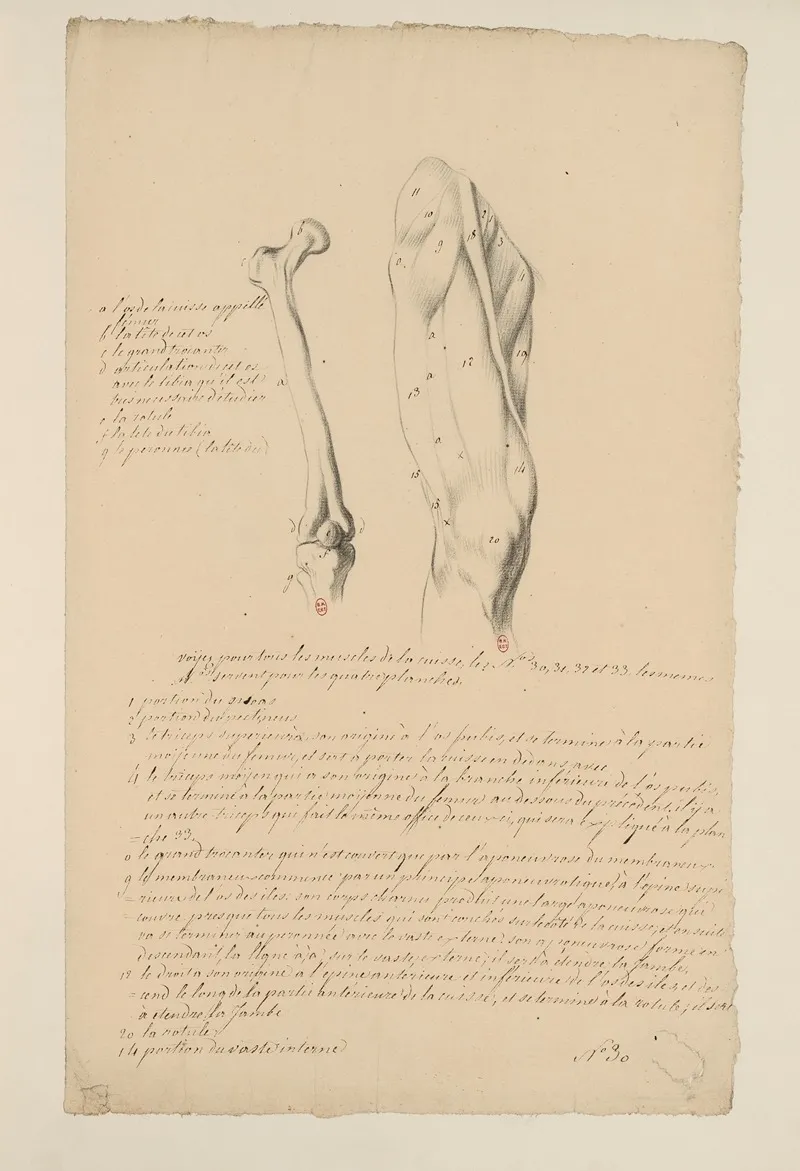 a l'os de la cuisse appellé
fémur
b la tête de cet os
c le grand trocanter
d articulation de cet os
avec le tibia qu'il est
très necessaire d'étudier
e la rotule
f la tête du tibia
g le peronnée (la tête du)
b
c
a
d
d
e
f
g
11
10
9
18
2
1
3
4
a
a
a
a
12
19
13
14
15
15
x
x
20
voijez pour tous les muscles de la cuisse, les Nos 30, 31, 32 et 33. les memes
Nos servent pour les quatre planches.
1 portion du psoas
2 portion du pectineus
3 le triceps superieur a son origine à l'os pubis, et se termine à la partie
moijenne du femur, et sert à porter la cuisse en dedans, avec
4 le triceps moijen qui a son origine à la branche inférieure de l'os pubis,
et se termine à la partie moijenne du femur au dessous du précédent. il y a
un autre triceps qui fait le même office de ceux-ci, qui sera expliqué à la plan
=che 33.
le grand trocanter qui n'est couvert que par l'aponeuvrose du membraneux
9 le membraneux commence par un principe aponeuvrotique, à l'épine supé
=rieure de l'os des iles: son corps charnu produit une large aponeuvrose qui
=couvre presque tous les muscles qui sont couchés sur le côté de la cuisse, et ensuite
va se terminer au peronnée avec le vaste externe: son aponeuvrose forme en
descendant, la ligne a,a, sur le vaste externe; il sert à étendre la jambe.
le droit a son origine à l'épine antérieure et inférieure de l'os des iles, et des
=cend le long de la partie antérieure de la cuisse, et se termine à la rotule; il sert
à etendre la Jambe
20 la rotule
14 portion du vaste interne
No 30